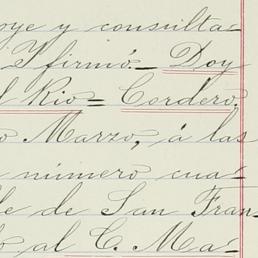 oye y consulta=
Y firmó.= Doy
l Rio= Cordero.
o Marzo, á las
número cua=
le de San Fran=
o al C. Ma=